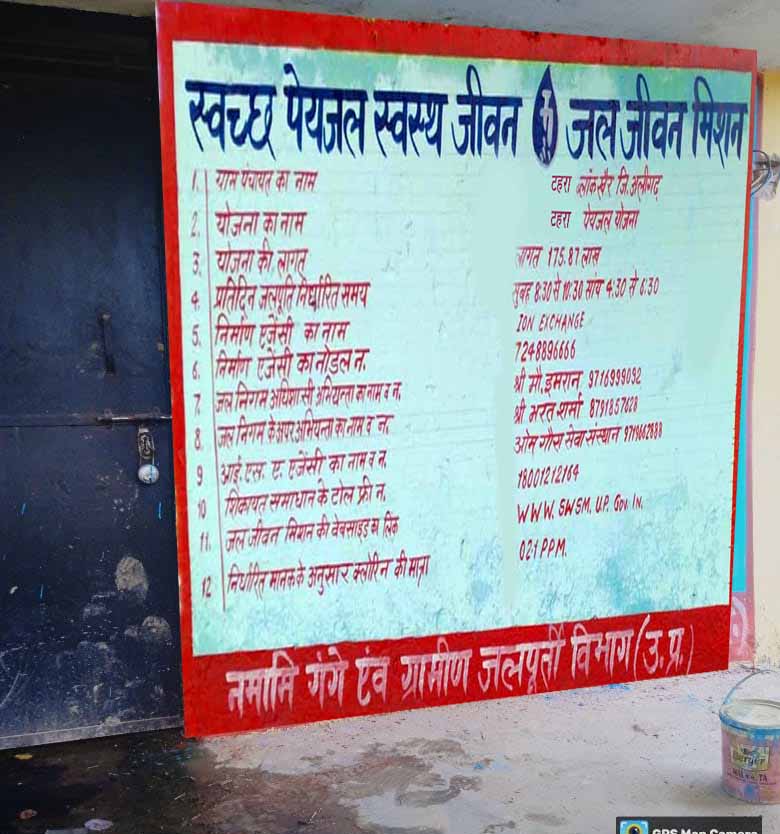 स्वच्छ पेयजल स्वस्थ जीवन जल जीवन मिशन
1. ग्राम पंचायत का नाम टहरा ब्लॉक खैर जि. अलीगढ़
2. योजना का नाम टहरा पेयजल योजना
3. योजना की लागत लागत 175.87 लाख
4. प्रतिदिन जलपूर्ति निर्धारित समय सुबह 8:30 से 10:30 सांय 4:30 से 6:30
5. निर्माण एजेंसी का नाम ION EXCHANGE
6. निर्माण एजेंसी का नोडल न. 7248896666
7. जल निगम अधिशासी अभियन्ता का नाम व न. श्री मौ. इमरान 9716999092
8. जल निगम के अपर अभियन्ता का नाम व न. श्री भरत शर्मा 8791857628
9 आई. एस. ए. एजेंसी का नाम व न. ओम गौरा सेवा संस्थान
10 शिकायत समाधान के टोल फ्री न. 18001212164
11. जल जीवन मिशन की वेबसाइड का लिंक WWW. SWSM. UP. Gov. In.
12 निर्धारित मानक के अनुसार क्लोरिन की मात्रा 021 PPM.
नमामि गंगे एंव ग्रामीण जलपूर्ती विभाग (उ.प्र.)
GPS Map Camera